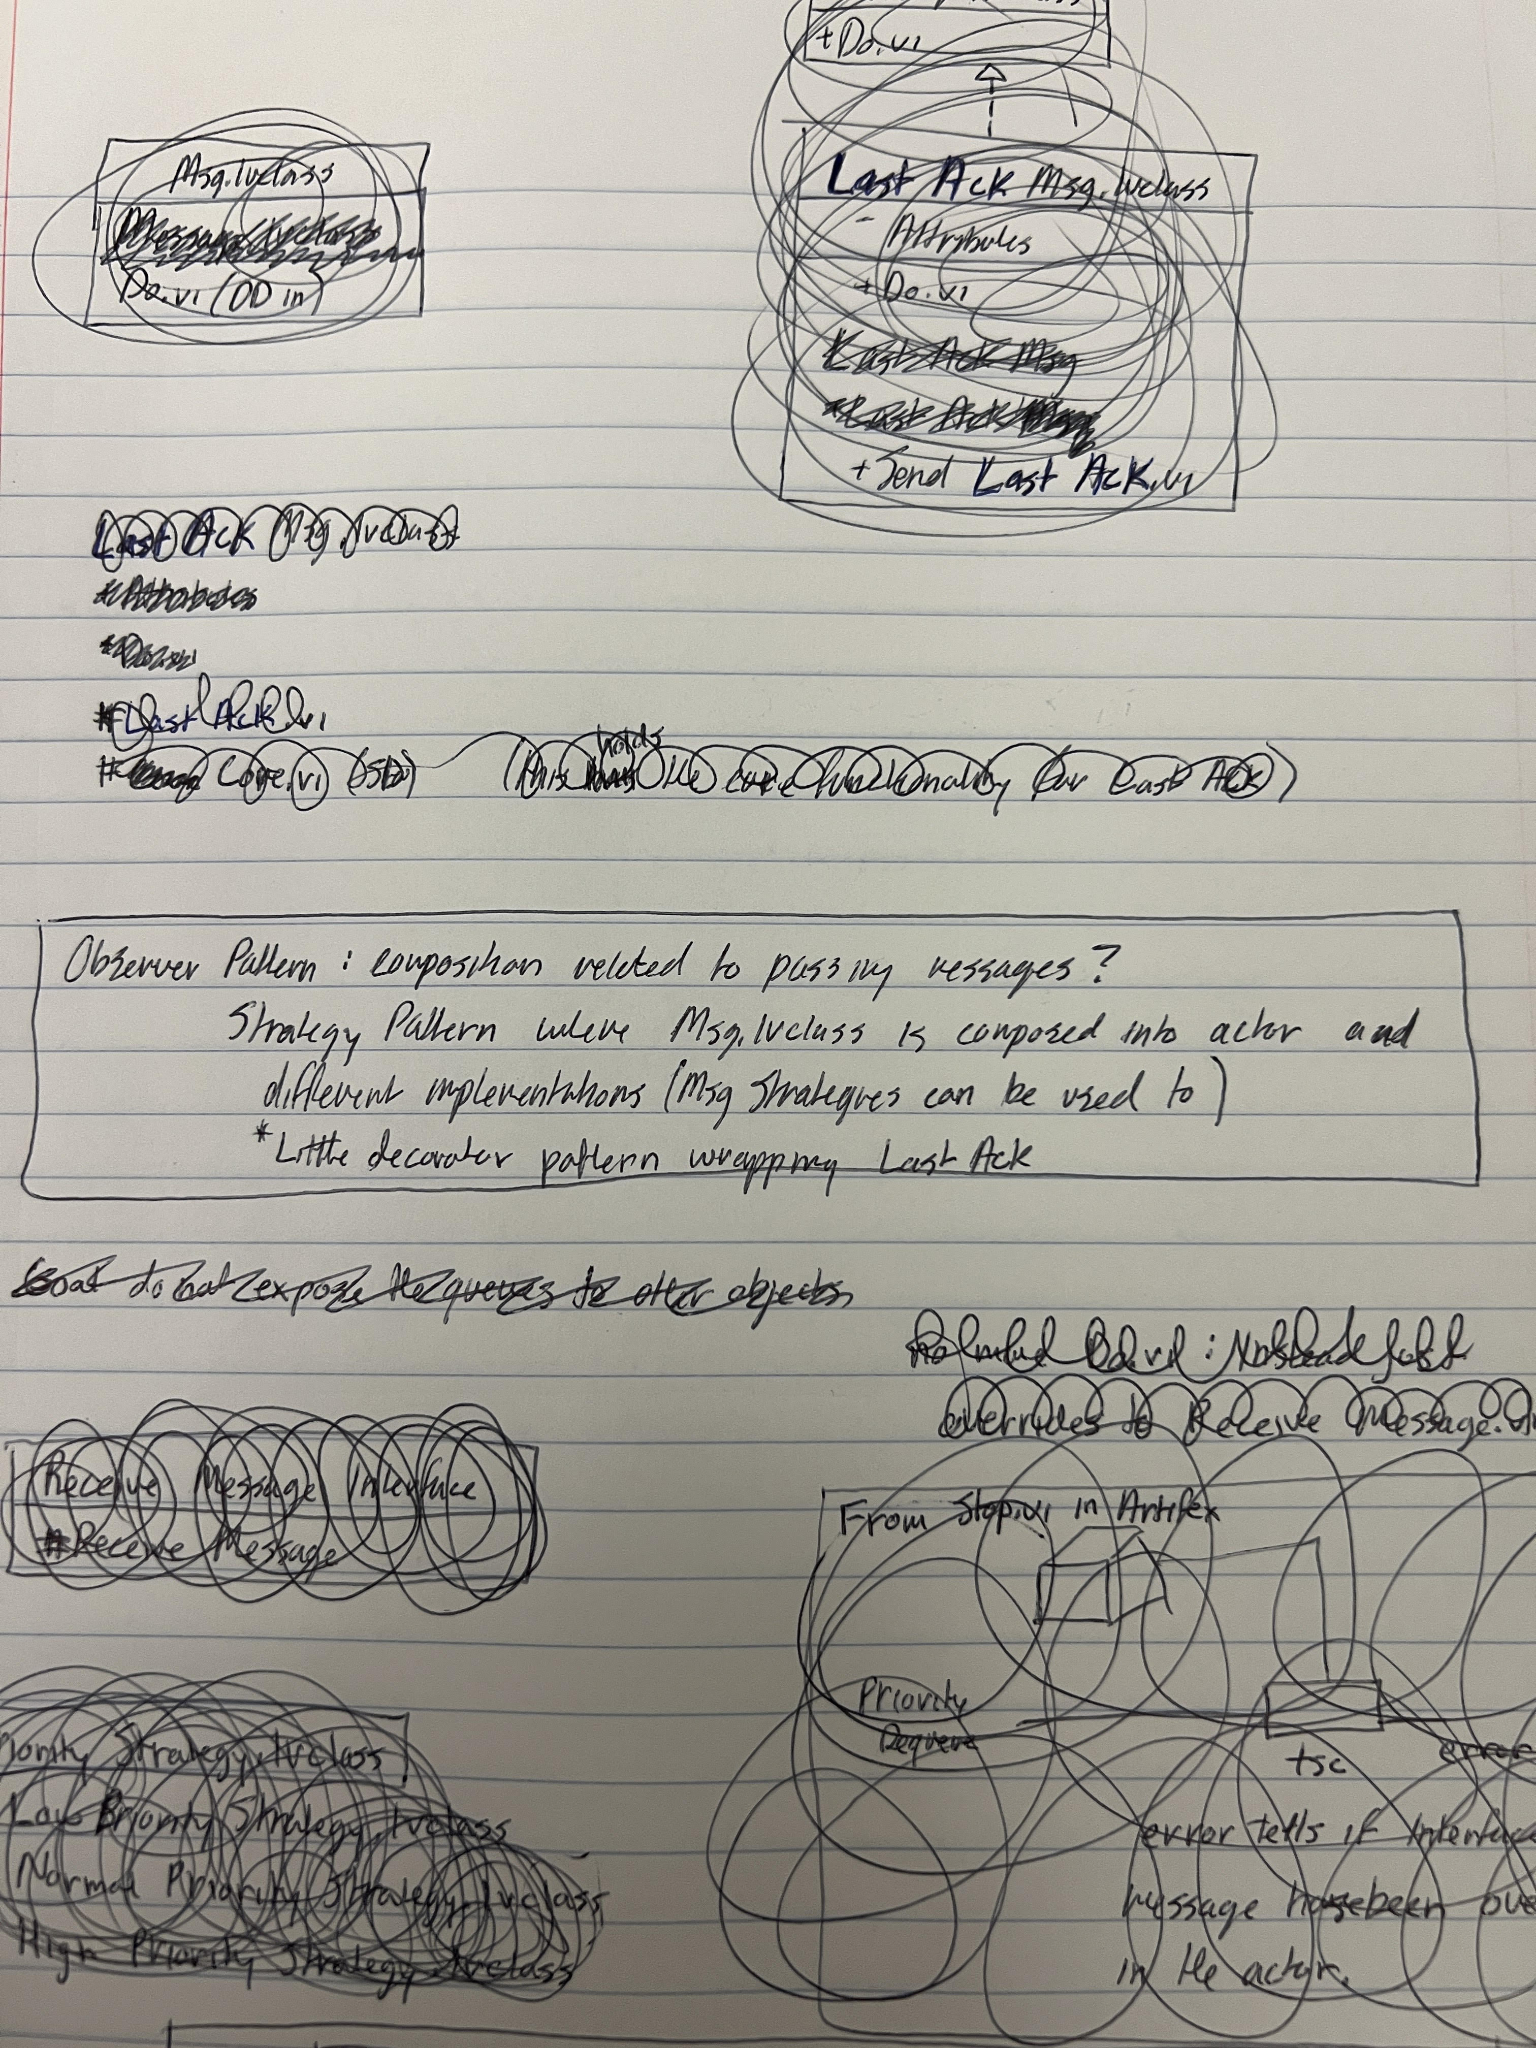 +Do.vi
Msg.lvclass
Message.lvclass
Do.vi (DD in)
Last Ack Msg.lvclass
- Attributes
+Do.vi
Last Ack Msg
*Last Ack Msg
+Send Last Ack.vi
Last Ack Msg.lvclass
*Attributes
*Do.vi
#Last Ack.vi
# Core.vi (this holds the core functionality for Last Ack)
Observer Pattern : composition related to passing messages?
Strategy Pattern where Msg.lvclass is composed into actor and
different implementations (Msg Strategies can be used to)
*Little decorator pattern wrapping Last Ack
Goal do not expose the queues to other objects
Do.vi : Instead just
overrides to Receive Message.vi
Receive Message Interface
#Receive Message
From Stop.vi in Artifex
Priority
Dequeue
tsc
error
Strategy.lvclass
Low Priority Strategy.lvclass
Normal Priority Strategy.lvclass
High Priority Strategy.lvclass
error tells if
message has been
in the actor.